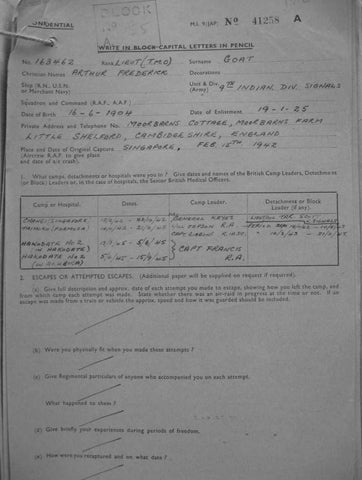 CONFIDENTIAL
BLOCK
M.I. 9/JAP. No 41258 A
WRITE IN BLOCK CAPITAL LETTERS IN PENCIL
No. 163462 Rank LIEUT (T.M.O) Surname GOAT
Christian Names ARTHUR FREDERICK Decorations
Ship (R.N., U.S.N. or Merchant Navy) Unit & Div. (Army) 9TH INDIAN. DIV. SIGNALS
Squadron and Command (R.A.F., A.A.F.)
Date of Birth 16-6-1904 Date of Enlistment 19-1-25
Private Address and Telephone No. MOORBARNS COTTAGE, MOORBARNS FARM
LITTLE SHELFORD, CAMBIDGESHIRE, ENGLAND
Place and Date of Original Capture SINGAPORE, FEB. 15TH 1942
(Aircrew R.A.F. to give place
and date of air crash).
1. What camps, detachments or hospitals were you in? Give dates and names of the British Camp Leaders, Detachments
(or Block) Leaders or, in case of hospitals, the Senior British Medical Officers.
Camp or Hospital. Dates. Camp Leader. Detachment or Block Leader (if any).
HAKODATE No 2
HAKODATE No 2
CAPT FRANCIS
R.A.
2. ESCAPES OR ATTEMPTED ESCAPES. (Additional paper will be supplied on request if required).
(a) Give full description and approx. date of each attempt you made to escape, showing how you left the camp, and
from which camp each attempt was made. State whether there was an air-raid in progress at the time or not. If an
escape was made from a train or vehicle the approx. speed and how it was guarded should be included.
(b) Were you physically fit when you made these attempts?
(c) Give Regimental particulars of anyone who accompanied you on each attempt.
What happened to them?
(d) Give briefly your experiences during periods of freedom.
(e) How were you recaptured and on what date?